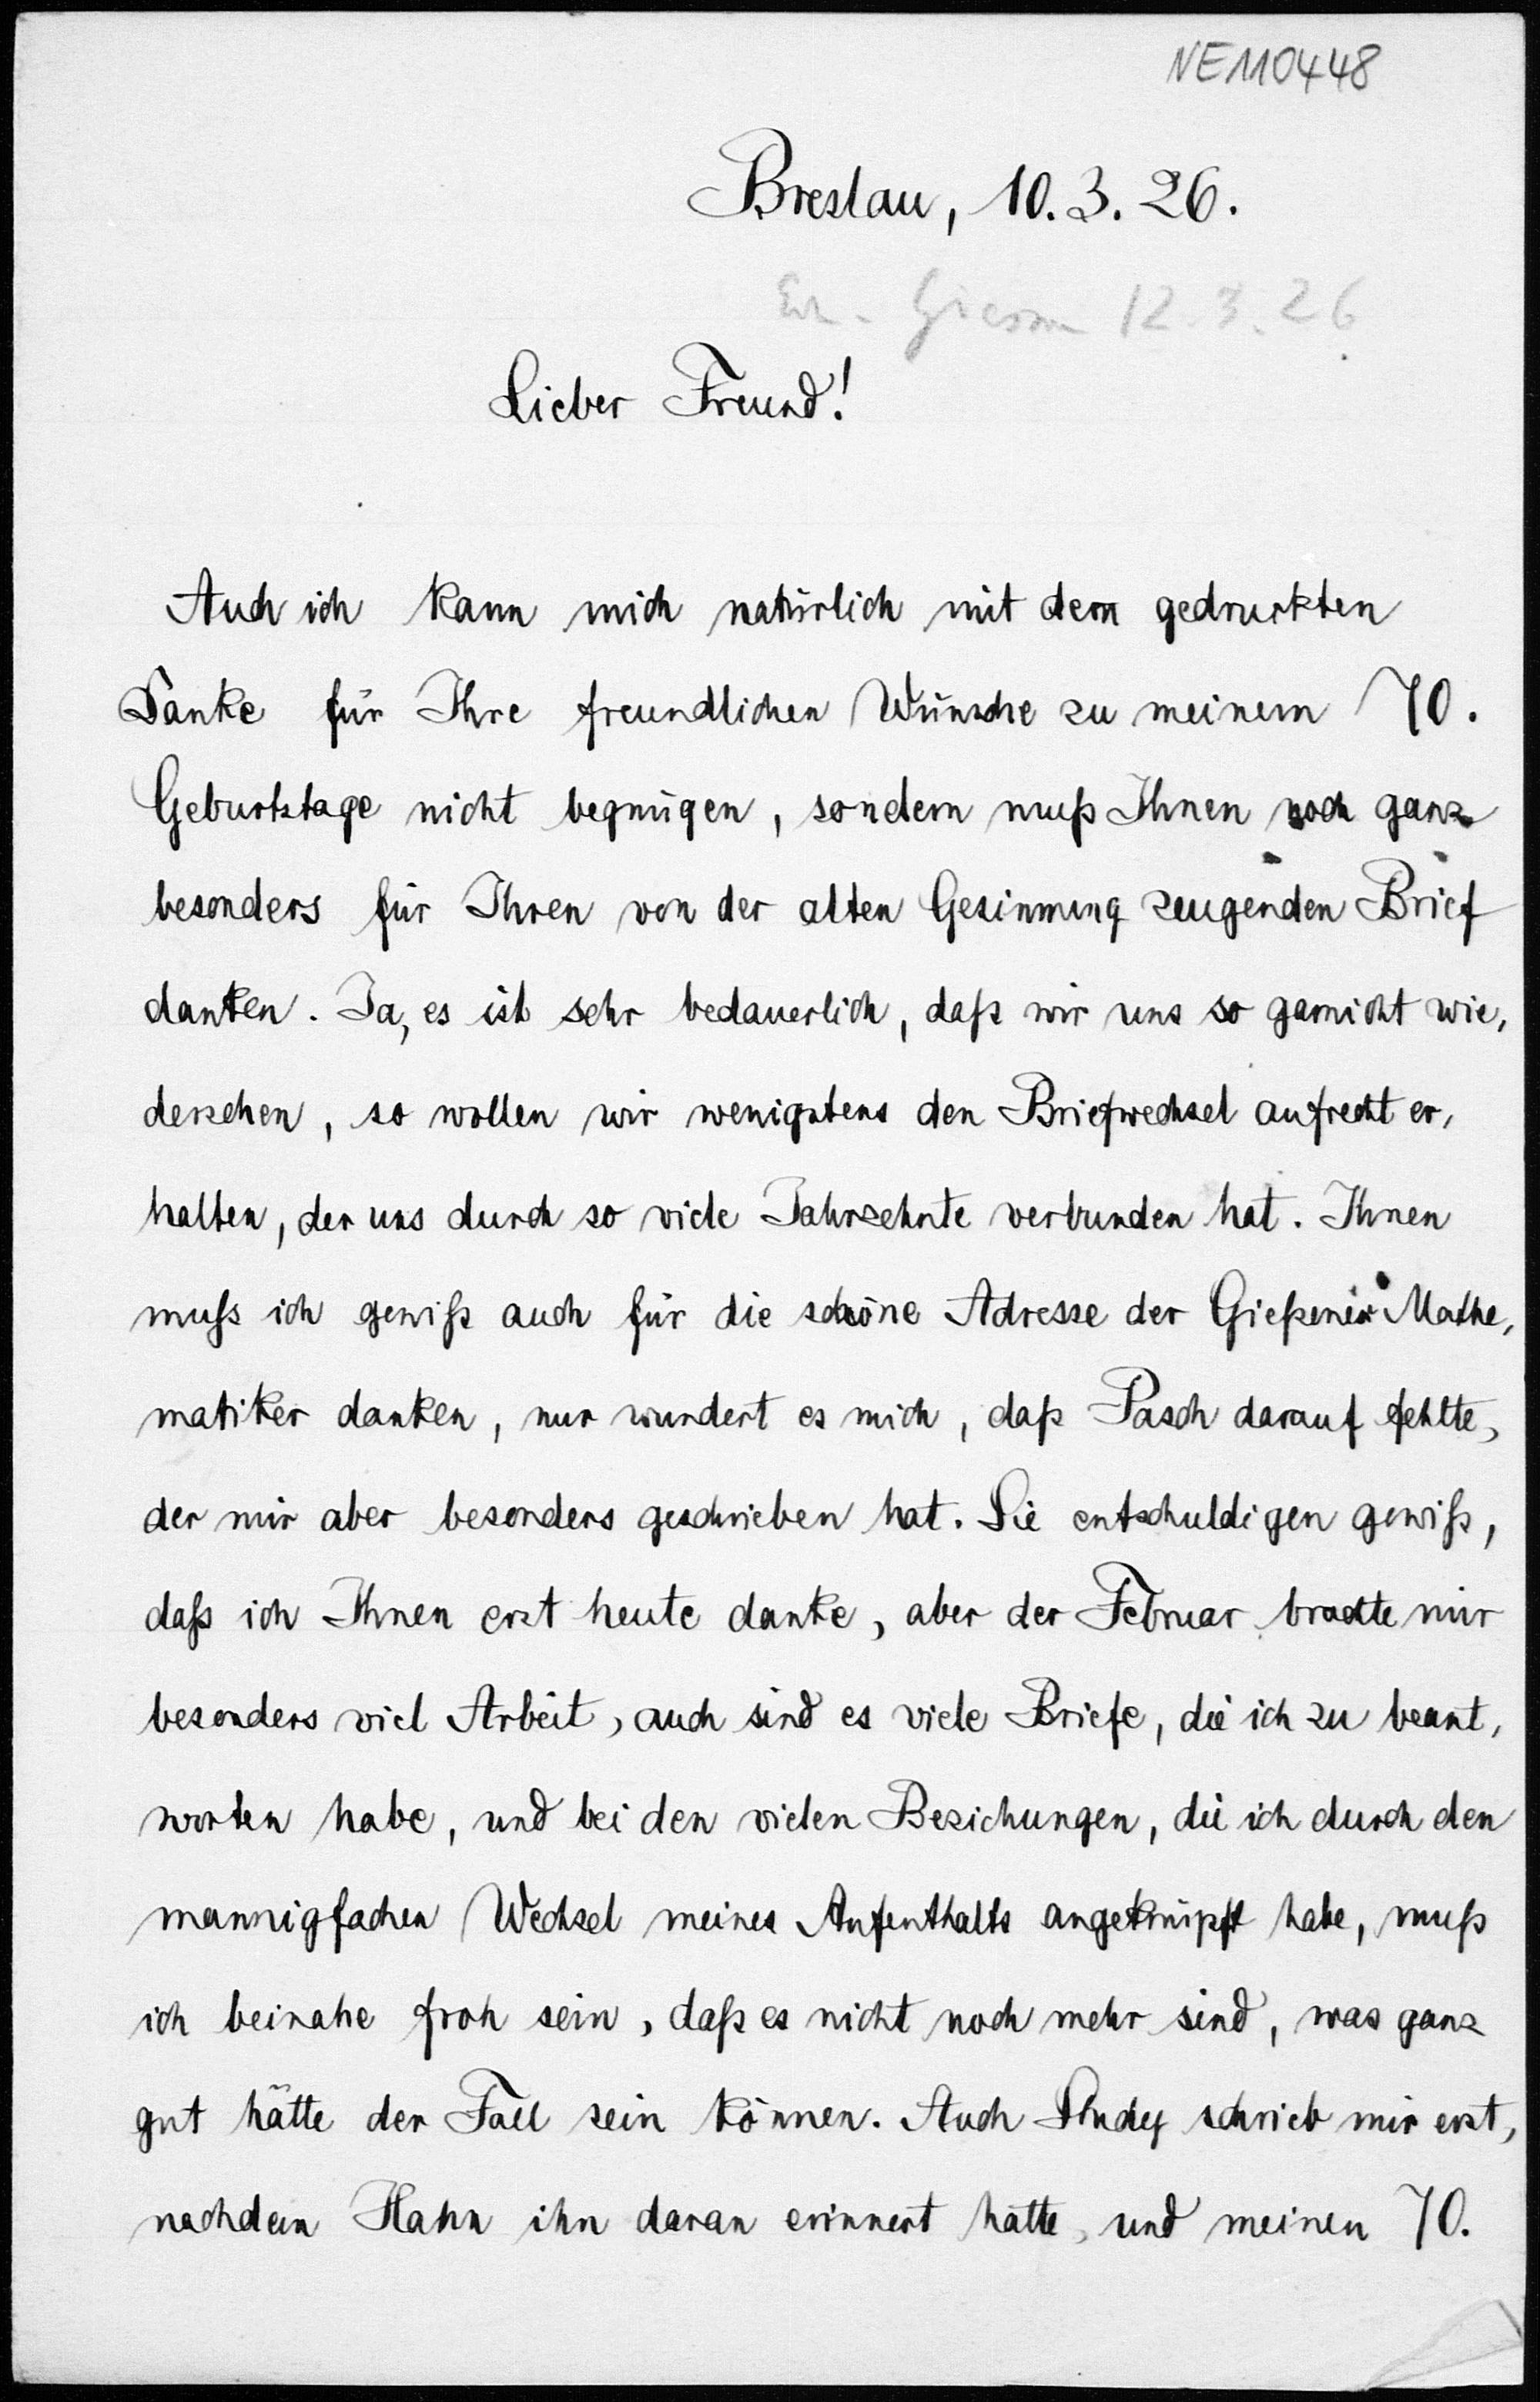 NE110448
Breslau, 10.3.26.
Giessen 12.3.26
Lieber Freund!
Auch ich kann mich natürlich mit dem gedruckten
Danke für Ihre freundlichen Wünsche zu meinem 70.
Geburtstage nicht begnügen, sondern muß Ihnen noch ganz
besonders für Ihren von der alten Gesinnung zeugenden Brief
danken. Ja, es ist sehr bedauerlich, daß wir uns so garnicht wie,
dersehen, so wollen wir wenigstens den Briefwechsel aufrecht er,
halten, der uns durch so viele Jahrzehnte verbunden hat. Ihnen
muß ich gewiß auch für die schöne Adresse der Gießener Mathe,
matiker danken, nur wundert es mich, daß Pasch darauf fehlte,
der mir aber besonders geschrieben hat. Sie entschuldigen gewiß,
daß ich Ihnen erst heute danke, aber der Februar brachte mir
besonders viel Arbeit, auch sind es viele Briefe, die ich zu beant,
worten habe, und bei den vielen Beziehungen, die ich durch den
mannigfachen Wechsel meines Aufenthalts angeknüpft habe, muß
ich beinahe froh sein, daß es nicht noch mehr sind, was ganz
gut hätte der Fall sein können. Auch Study schrieb mir erst,
nachdem Hahn ihn daran erinnert hatte, und meinen 70.